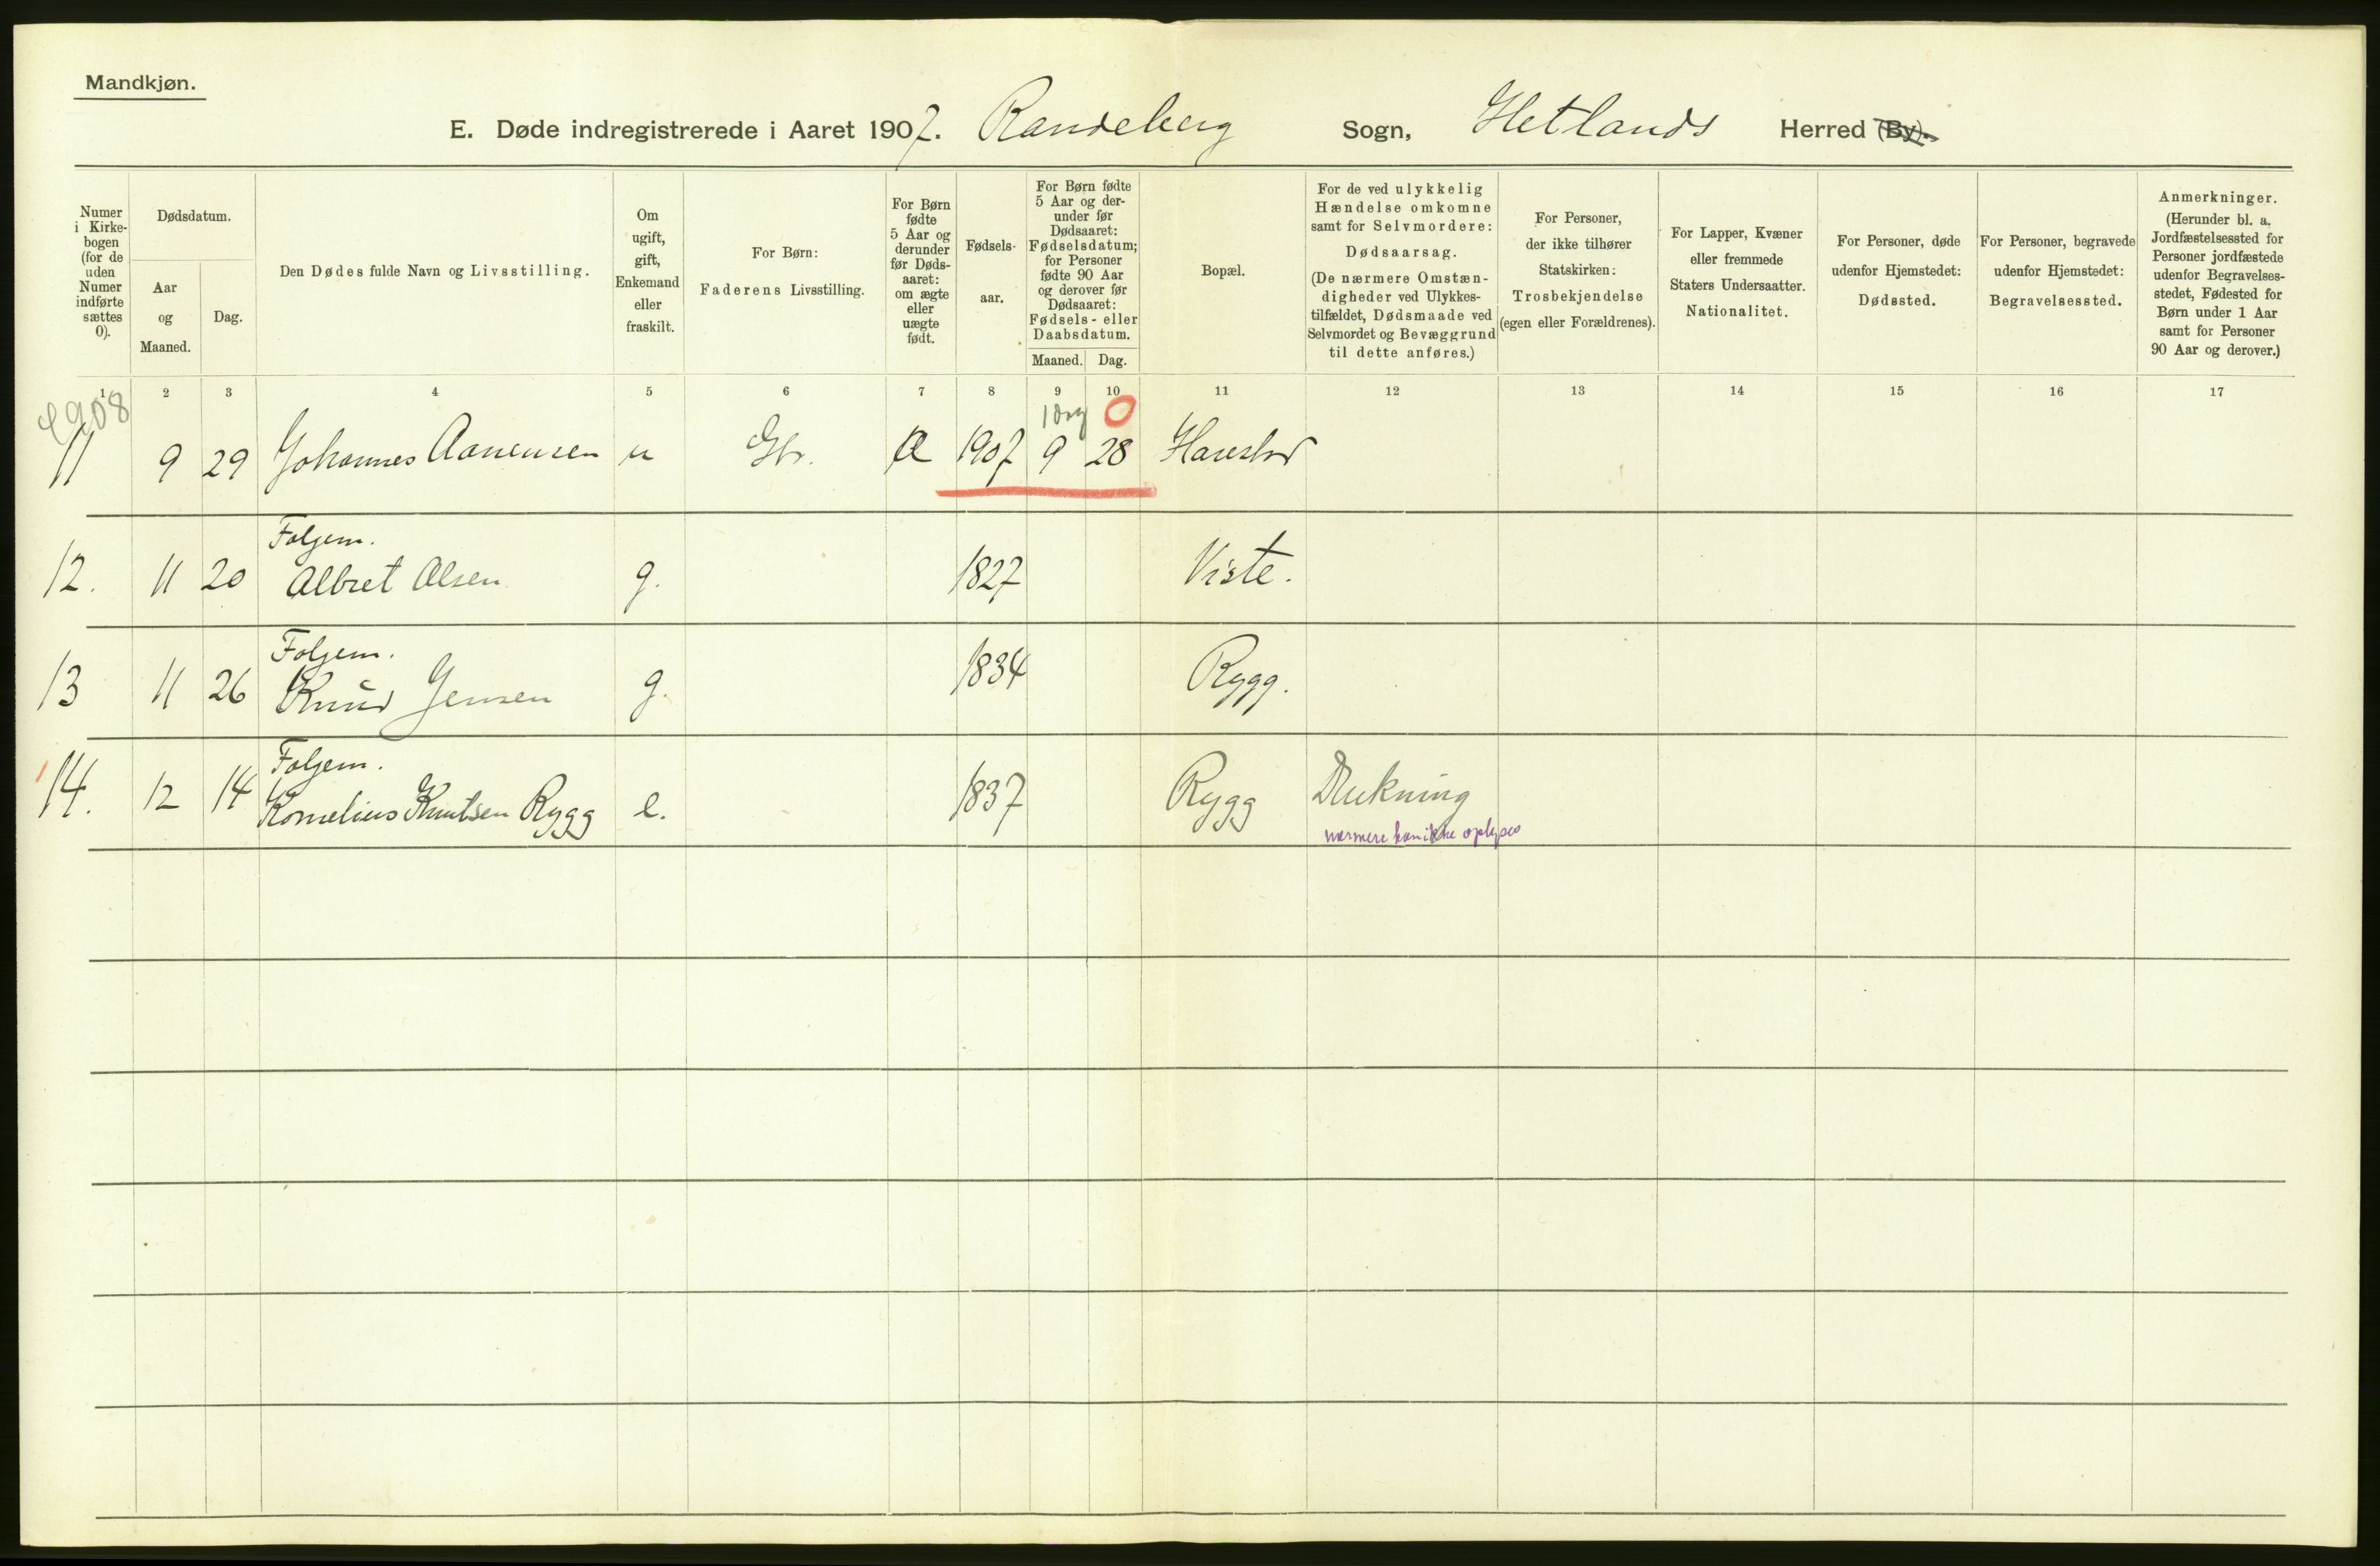 Mandkjøn.
E. Døde indregistrerede i Aaret 1907. Randeberg Sogn, Hetlands Herred (By).
Numer i Kirkebogen (for de uden Numer indførte sættes 0).
Dødsdatum.
Aar og Maaned.
Dag.
Den Dødes fulde Navn og Livsstilling.
Om ugift, gift, Enkemand eller fraskilt.
For Børn:
Faderens Livsstilling.
For Børn fødte 5 Aar og derunder før Dødsaaret: om ægte eller uægte født.
Fødselsaar.
For Børn fødte 5 Aar og derunder før Dødsaaret: Fødselsdatum; for Personer fødte 90 Aar og derover før Dødsaaret: Fødsels- eller Daabsdatum.
Maaned. Dag.
Bopæl.
For de ved ulykkelig Hændelse omkomne samt for Selvmordere:
Dødsaarsag.
(De nærmere Omstændigheder ved Ulykkestilfældet, Dødsmaade ved Selvmordet og Bevæggrund til dette anføres.)
For Personer, der ikke tilhører Statskirken:
Trosbekjendelse
(egen eller Forældrenes).
For Lapper, Kvæner eller fremmede Staters Undersaatter.
Nationalitet.
For Personer, døde udenfor Hjemstedet:
Dødssted.
For Personer, begravede udenfor Hjemstedet:
Begravelsessted.
Anmerkninger.
(Herunder bl. a. Jordfæstelsessted for Personer jordfæstede udenfor Begravelsesstedet, Fødested for Børn under 1 Aar samt for Personer 90 Aar og derover.)
1 2 3 4 5 6 7 8 9 10 11 12 13 14 15 16 17
1 dag 0
11 9 29 Johannes Aanensen u Gbr. Æ 1907 9 28 Harestad
Folgem.
12. 11 20 Albret Olsen g. 1827 Viste.
Folgem.
13 11 26 Knud Jensen g. 1834 Rygg.
Folgem.
14. 12 14 Kornelius Knutsen Rygg e. 1837 Rygg Drukning
nærmere kan ikke oplyses